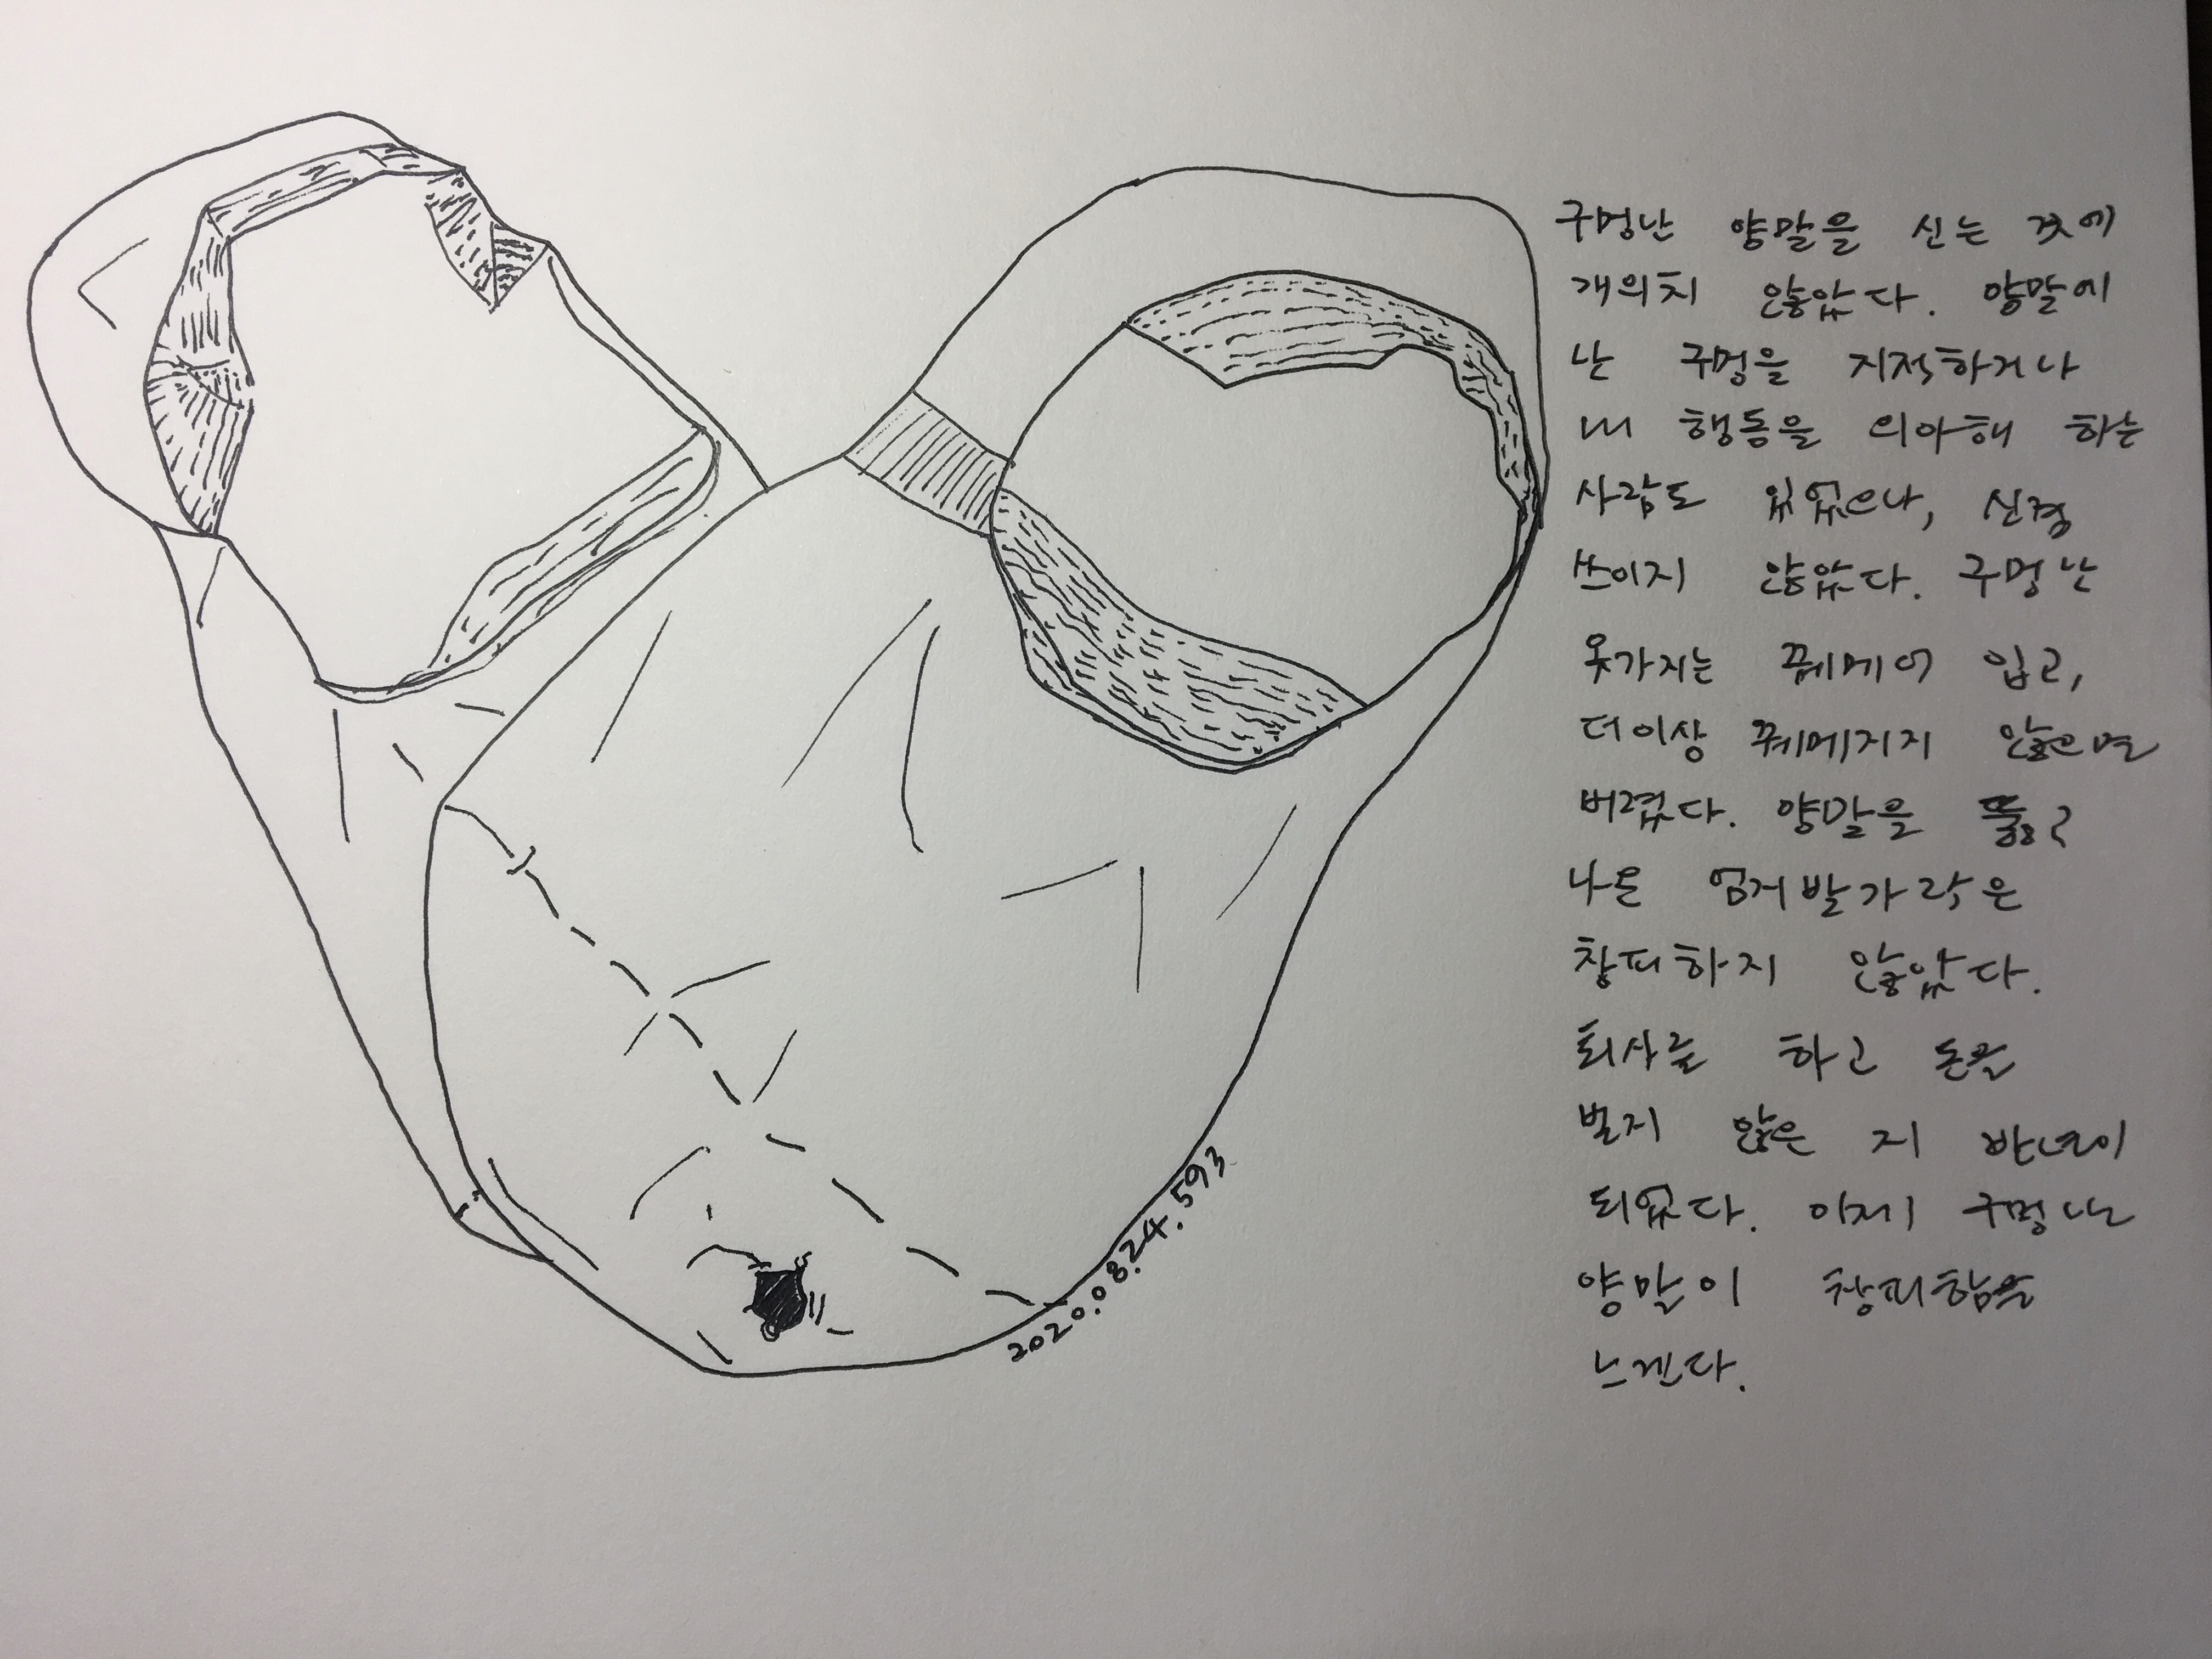 구멍난 양말을 신는 것에
개의치 않았다. 양말에
난 구멍을 지적하거나
내 행동을 의아해 하는
사람도 있었으나, 신경
쓰이지 않았다. 구멍난
옷가지는 꿰메어 입고,
더이상 꿰메지지 않으면
버렸다. 양말을 뚫고
나온 엄지발가락은
창피하지 않았다.
퇴사를 하고 돈을
벌지 않은 지 반년이
되었다. 이제 구멍난
양말이 창피함을
느낀다.
2020.08.24.593